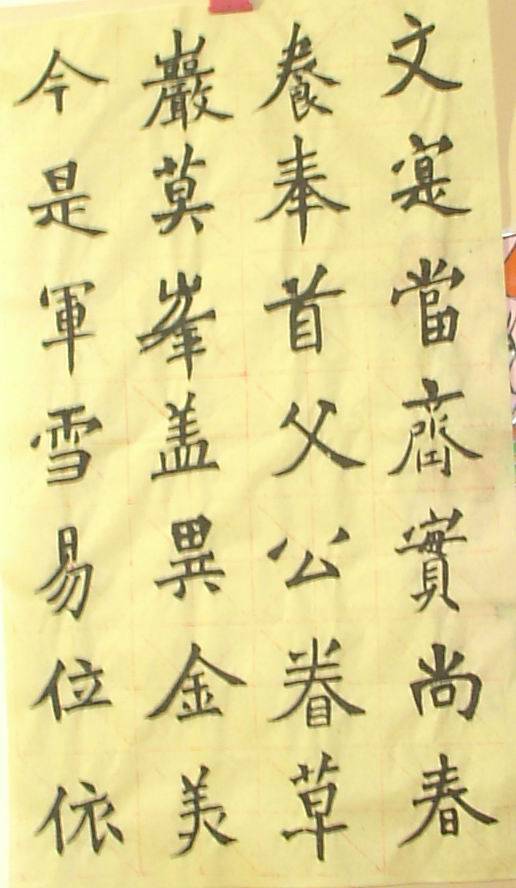 文寔當齊實尚春
養奉首父公眷草
巖莫峯盖異金美
今是軍雪易位依